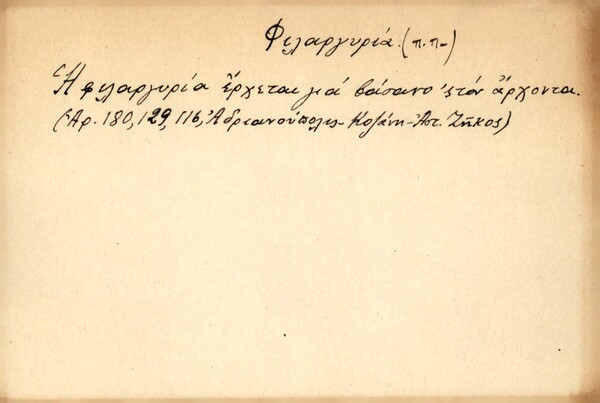 Φιλαργυρία. (π.π-)
Ἡ φιλαργυρία ἔρχεται γιά βάσανο 'στόν ἄρχοντα.
(Ἀρ. 180, 129, 116, Ἀδριανούπολις - Κοζάνη - Ἀστ. Ζῆκος)